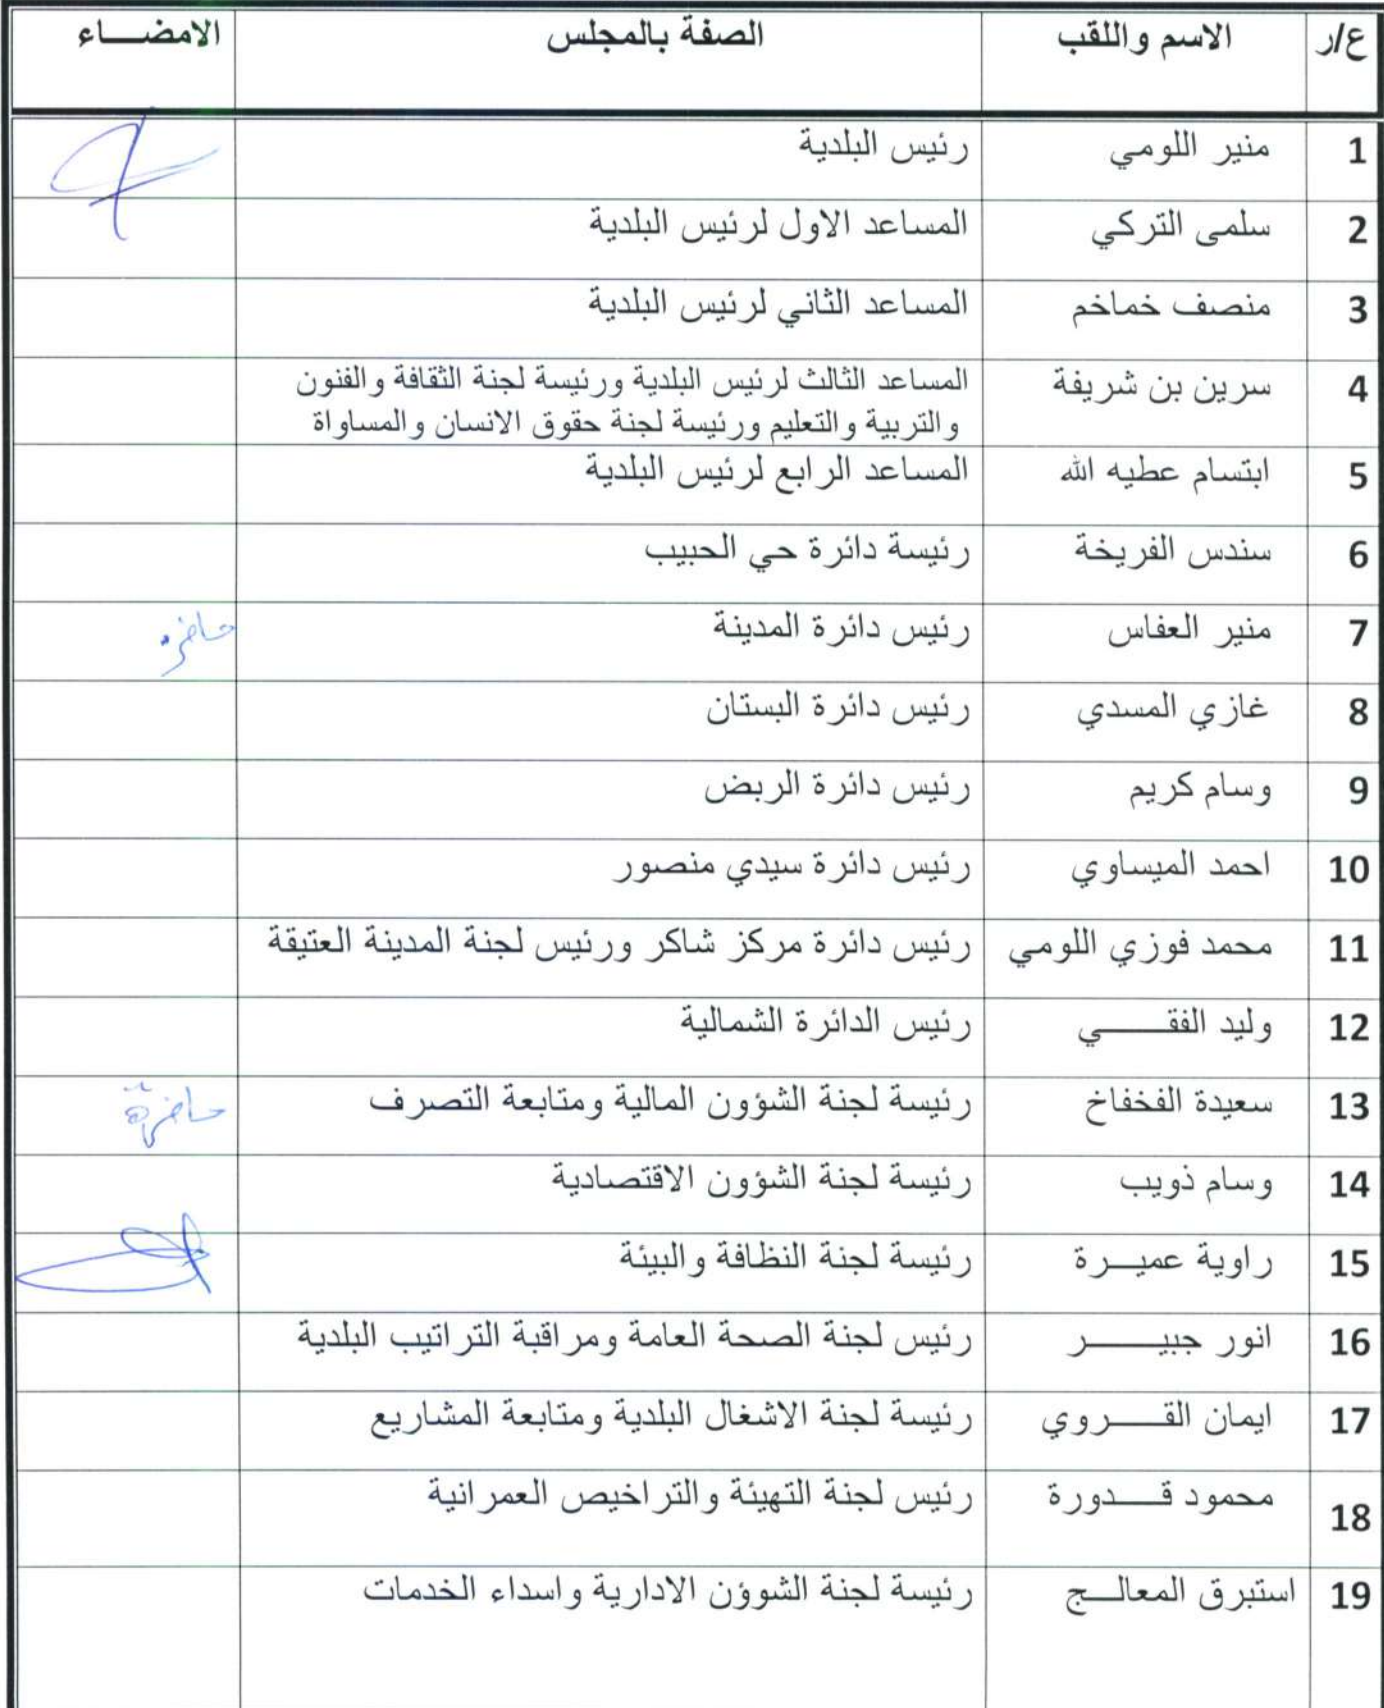 ع/ر الاسم واللقب الصفة بالمجلس الامضـــاء
1 منير اللومي رئيس البلدية
2 سلمى التركي المساعد الاول لرئيس البلدية
3 منصف خماخم المساعد الثاني لرئيس البلدية
4 سرين بن شريفة المساعد الثالث لرئيس البلدية ورئيسة لجنة الثقافة والفنون
والتربية والتعليم ورئيسة لجنة حقوق الانسان والمساواة
5 ابتسام عطيه الله المساعد الرابع لرئيس البلدية
6 سندس الفريخة رئيسة دائرة حي الحبيب
7 منير العفاس رئيس دائرة المدينة
8 غازي المسدي رئيس دائرة البستان
9 وسام كريم رئيس دائرة الربض
10 احمد الميساوي رئيس دائرة سيدي منصور
11 محمد فوزي اللومي رئيس دائرة مركز شاكر ورئيس لجنة المدينة العتيقة
12 وليد الفقـــــي رئيس الدائرة الشمالية
13 سعيدة الفخفاخ رئيسة لجنة الشؤون المالية ومتابعة التصرف حاضرة
14 وسام ذويب رئيسة لجنة الشؤون الاقتصادية
15 راوية عميـــرة رئيسة لجنة النظافة والبيئة
16 انور جبيـــــــر رئيس لجنة الصحة العامة ومراقبة التراتيب البلدية
17 ايمان القـــــروي رئيسة لجنة الاشغال البلدية ومتابعة المشاريع
18 محمود قـــــدورة رئيس لجنة التهيئة والتراخيص العمرانية
19 استبرق المعالـــج رئيسة لجنة الشوؤن الادارية واسداء الخدمات